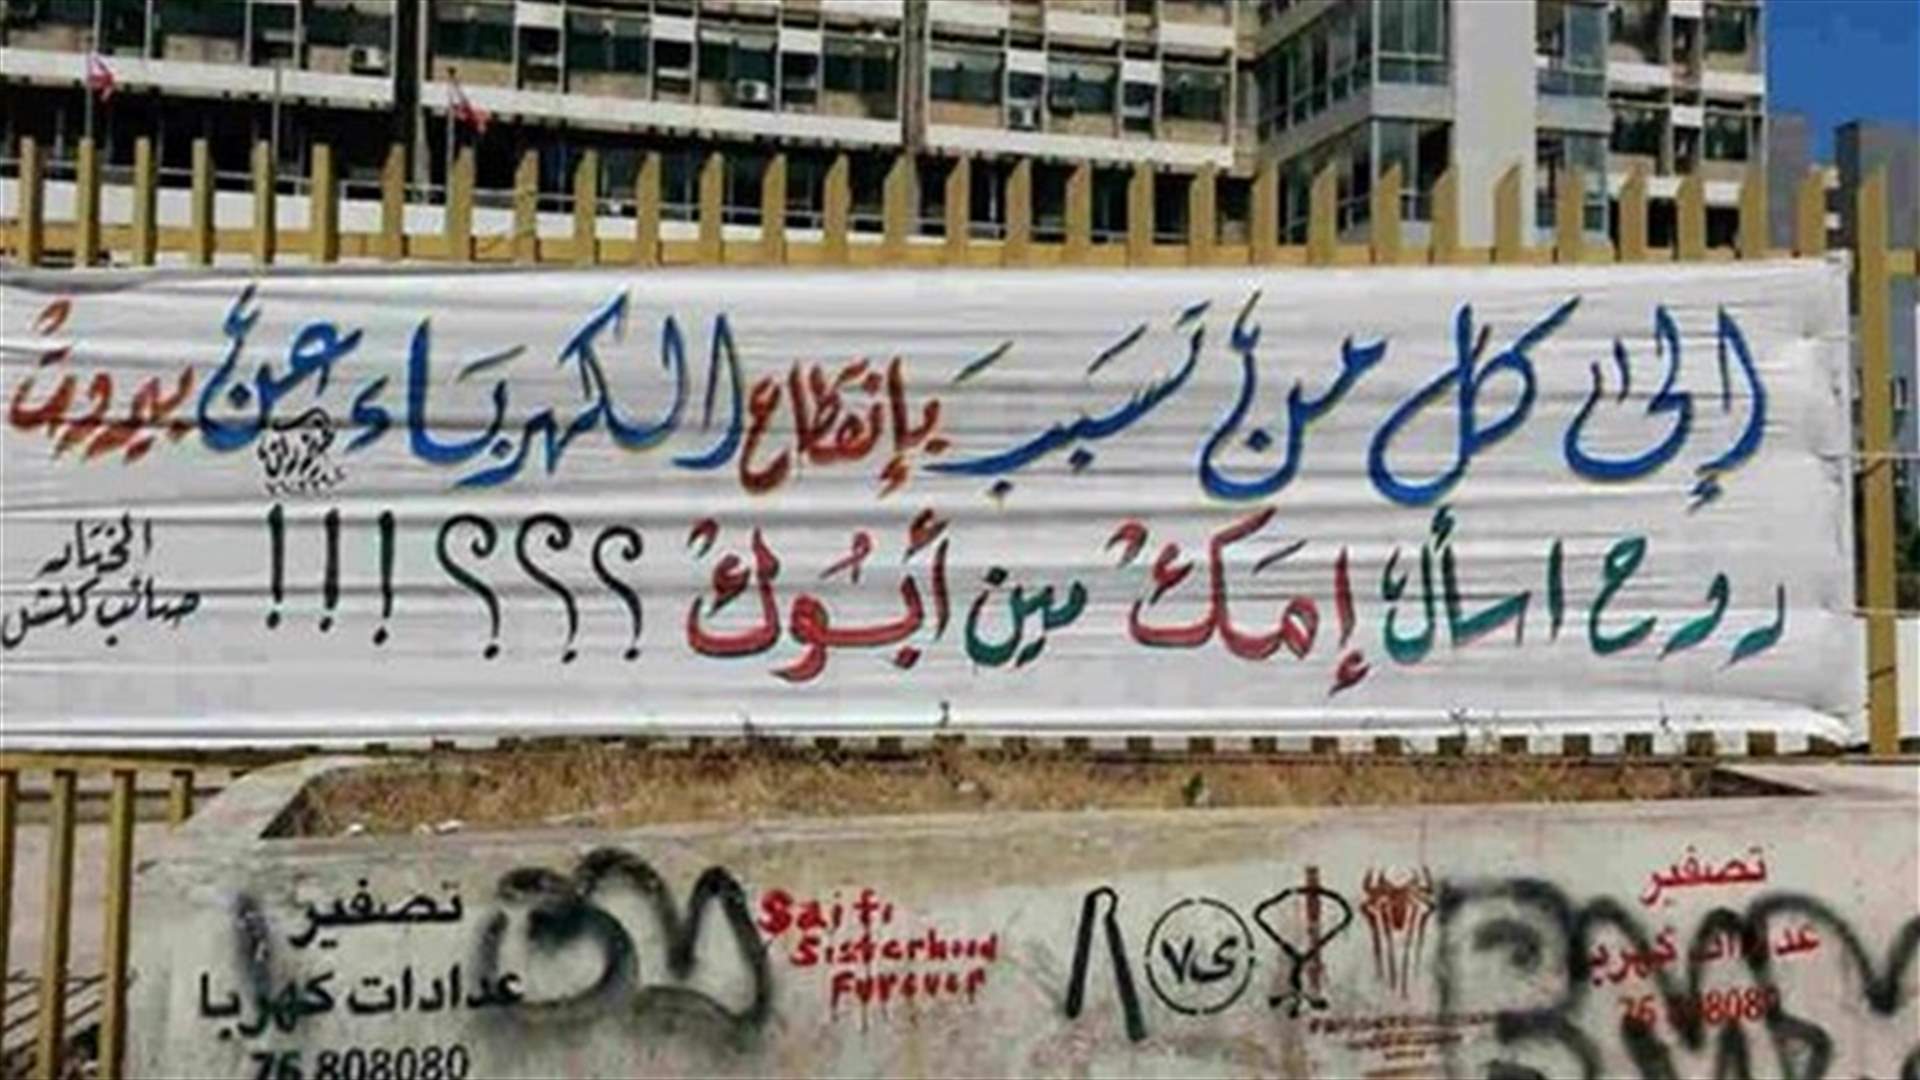 إلى كل من تسبب بإنقطاع الكهرباء عن بيروت
روح اسأل إمك مين أبوك ؟؟؟ !!!
المختار
صائب كلش
تصفير
عدادات كهربا
76 808080
Saifi
Sisterhood
Furever
تصفير
عدادات كهربا
76 808080